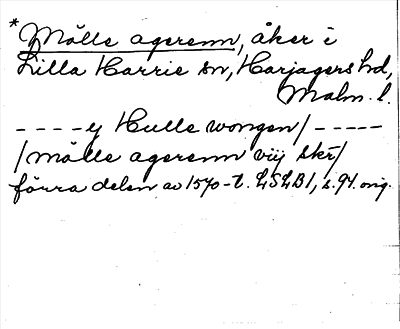 * Mölle agerenn, åker i
Lilla Harrie sn, Harjagers hd,
Malm. l.
- - - - y Hulle wongen / - - - - -
/ mölle agerenn viij skr /
förra delen av 1570-t. LSLB 1, s. 94. orig.